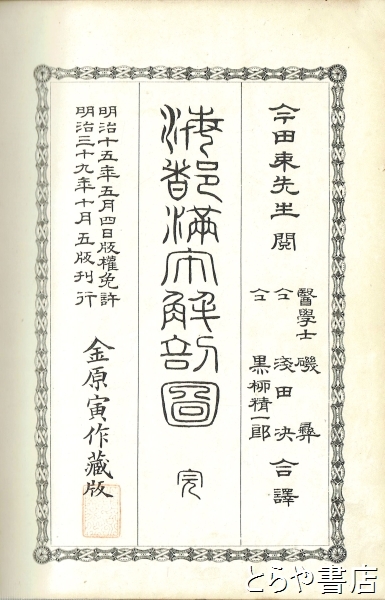 今田東先生閲
醫學士 磯 彝
仝 淺田決 合譯
仝 黒柳精一郎
海都滿氏解剖圖 完
明治十五年五月四日版權免許
明治三十九年十月五版刊行
金原寅作藏版
とらや書店